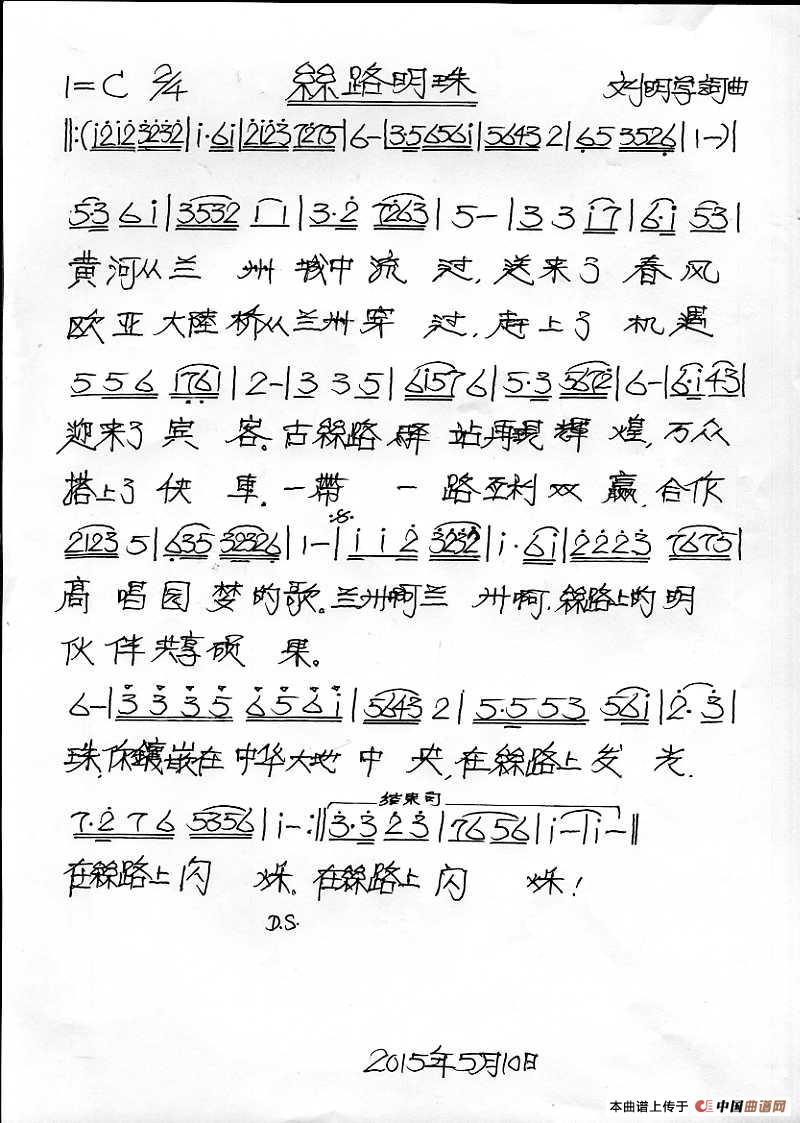 1=C 2/4 絲路明珠 刘明学詞曲
‖:(i2i2 3232|i·6i|2i23 7275|6-|3·5 656i|5643 2|65 3526|1-)|
53 6i|3532 11|3·2 7263|5-|3 3 i7|6·i 53|
黄河从兰 州城中流 过,送来了春风
欧亚大陸桥从兰州穿 过,赶上了机遇
5 5 6 1761|2-|3 3 5|6i576|5·3 5672|6-|6·i43|
迎来了宾 客。古絲路驛站再現輝煌,万众
搭上了快車。一帶 一路互利双赢,合作
2123 5|635 32326|1-|i i 2 3232|i·6i|2223 7675|
高唱园梦的歌。兰州啊兰 州啊,絲路上的明
伙伴共享硕 果。
6-|3335 656i|5643 2|5·553 56i|2·3|
珠,你鑲嵌在中华大地中 央,在絲路上发 光.
7·276 5356|i-:‖3·3 2 3|76 56|i-|i-‖
结束句
在絲路上闪 烁。在絲路上闪 烁!
D.S.
2015年5月10日
本曲谱上传于 中国曲谱网